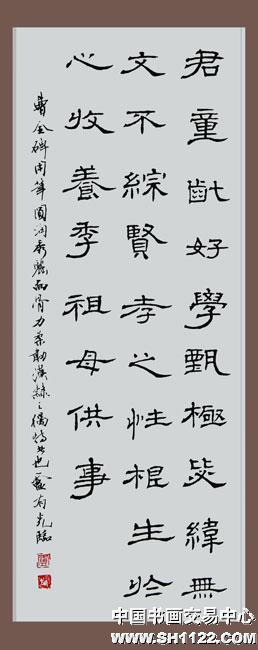 君童齔好學甄極毖緯無
文不綜賢孝之性根生於
心收養季祖母供事
曹全碑用筆圓潤秀麗而骨力柔勁漢隸之獨特也 有光臨
中国书画交易中心
www.SH1122.com